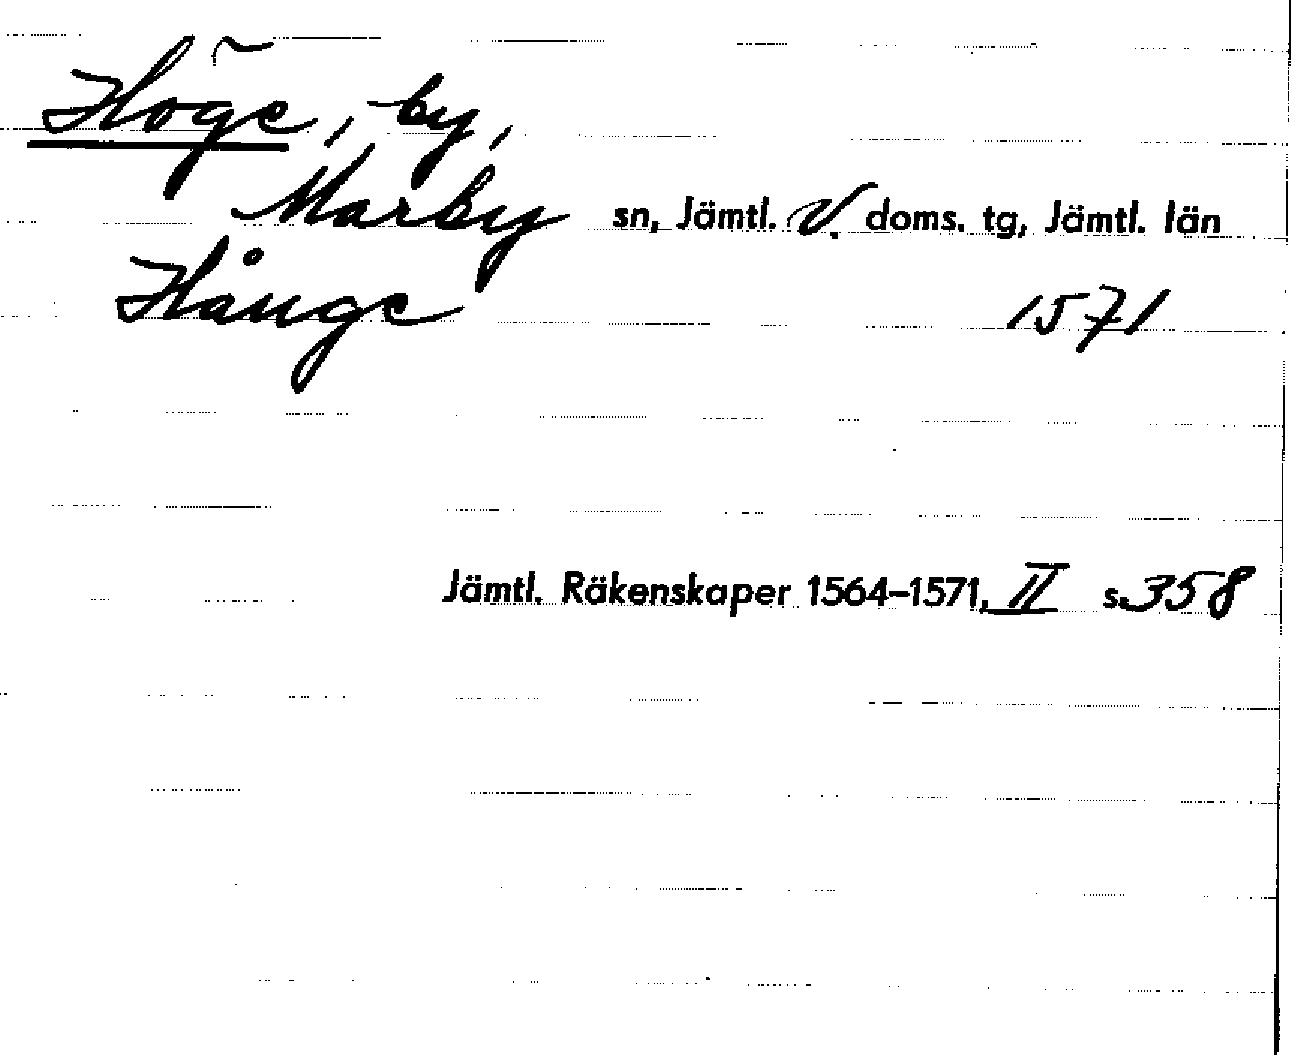 Höge, by,
Marby sn, Jämtl. V. doms. tg, Jämtl. län
Hånge 1571
Jämtl. Räkenskaper 1564-1571, II s. 358